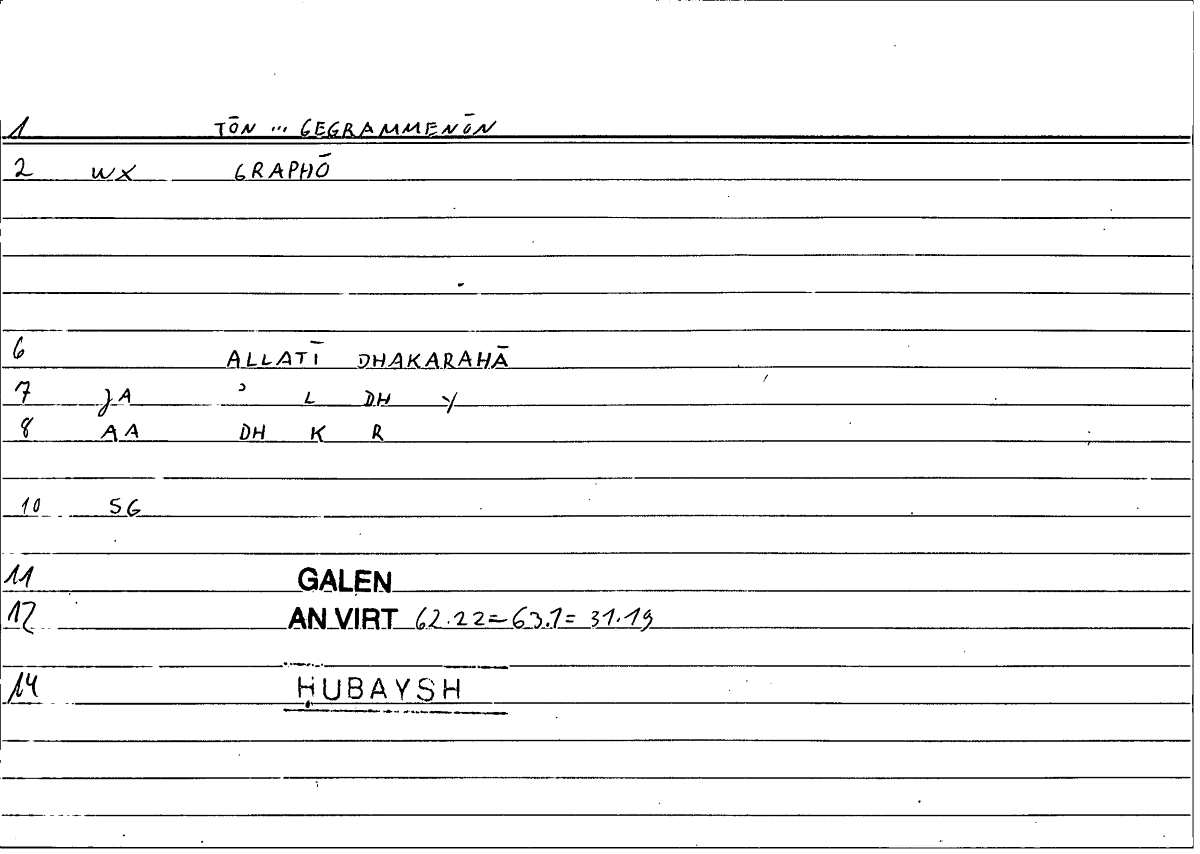 1 TŌN ... GEGRAMMENŌN
2 WX GRAPHŌ
6 ALLATĪ DHAKARAHĀ
7 JA ʾ L DH Y
8 AA DH K R
10 SG
11 GALEN
12 AN VIRT 62.22=63.1=31.19
14 ḤUBAYSH